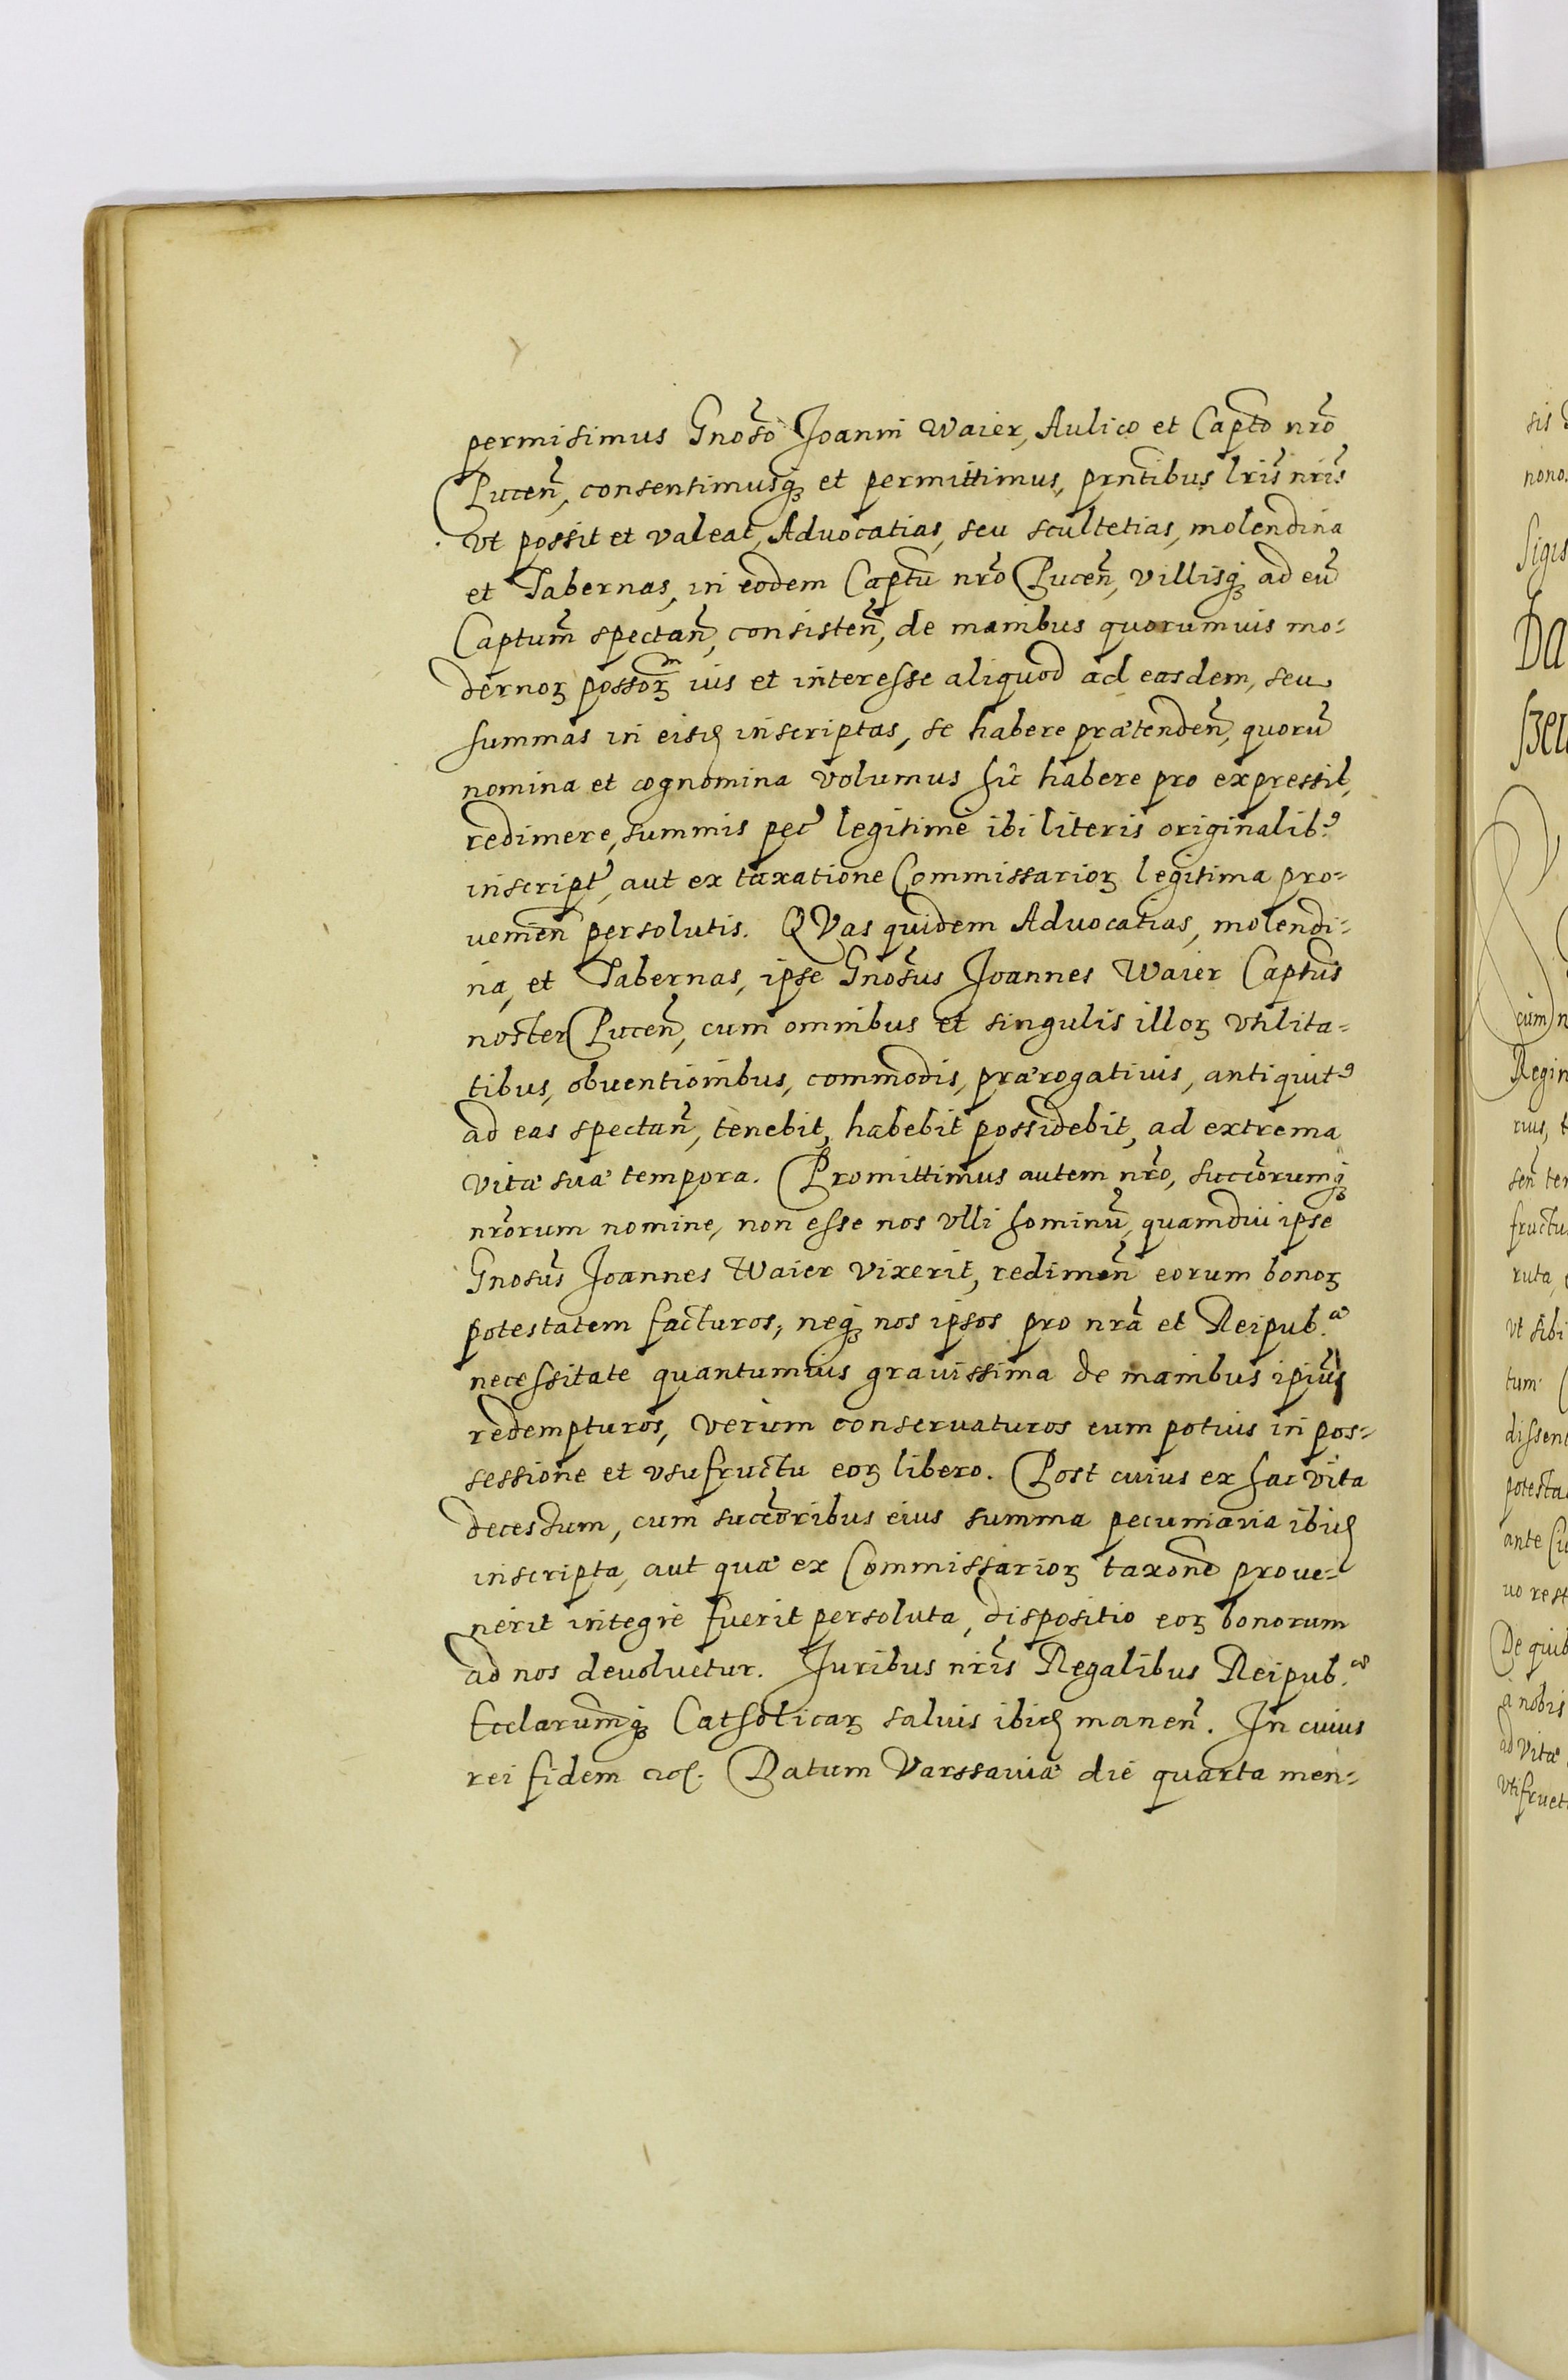 permisimus Gnoso Joanni Waier, Aulico et Capto nro
Pucen, consensimusq et permittimus, prntibus lris nris
vt possit et valeat, Aduocatias, seu scultetias, molendina
et Tabernas, in eodem Captu nro Pucen, villisq ad eu
Captum spectan, consisten, de manibus quorumuis mo-
dernoꝝ possorꝝ ius et interesse aliquod ad easdem, seu
summas in eisd inscriptas, se habere prætenden, quoru
nomina et cognomina volumus hic habere pro expressis,
redimere, summis pec legitime ibi literis originalib9
inscript, aut ex taxatione Commissarioꝝ legitima pro-
uenien persolutis. QVas quidem Aduocatias, molendi-
na, et Tabernas, ipse Gnosus Joannes Waier Captus
noster Pucen, cum omnibus et singulis illoꝝ vtilita-
tibus, obuentionibus, commodis, prærogatiuis, antiquit9
ad eas spectan, tenebit, habebit possidebit, ad extrema
vitæ suæ tempora. Promittimus autem nro, succorumq
nrorum nomine, non esse nos vlli hominu, quamdiu ipse
Gnosus Joannes Waier vixerit, redimen eorum bonoꝝ
potestatem facturos, neq nos ipsos pro nra et Reipub.æ
necessitate quantumuis grauissima de manibus ipius
redempturos, verum conseruaturos eum potius in pos-
sessione et vsufructu eoꝝ libero. Post cuius ex hac vita
decessum, cum succoribus eius summa pecuniaria ibid
inscripta, aut quæ ex Commissarioꝝ taxone proue-
nerit integre fuerit persoluta, dispositio eoꝝ bonorum
ad nos deuoluetur. Juribus nris Regalibus Reipub.æ
Ecclarumq Catholicaꝝ saluis ibid manen. In cuius
rei fidem Datum Varssauiæ die quarta men-